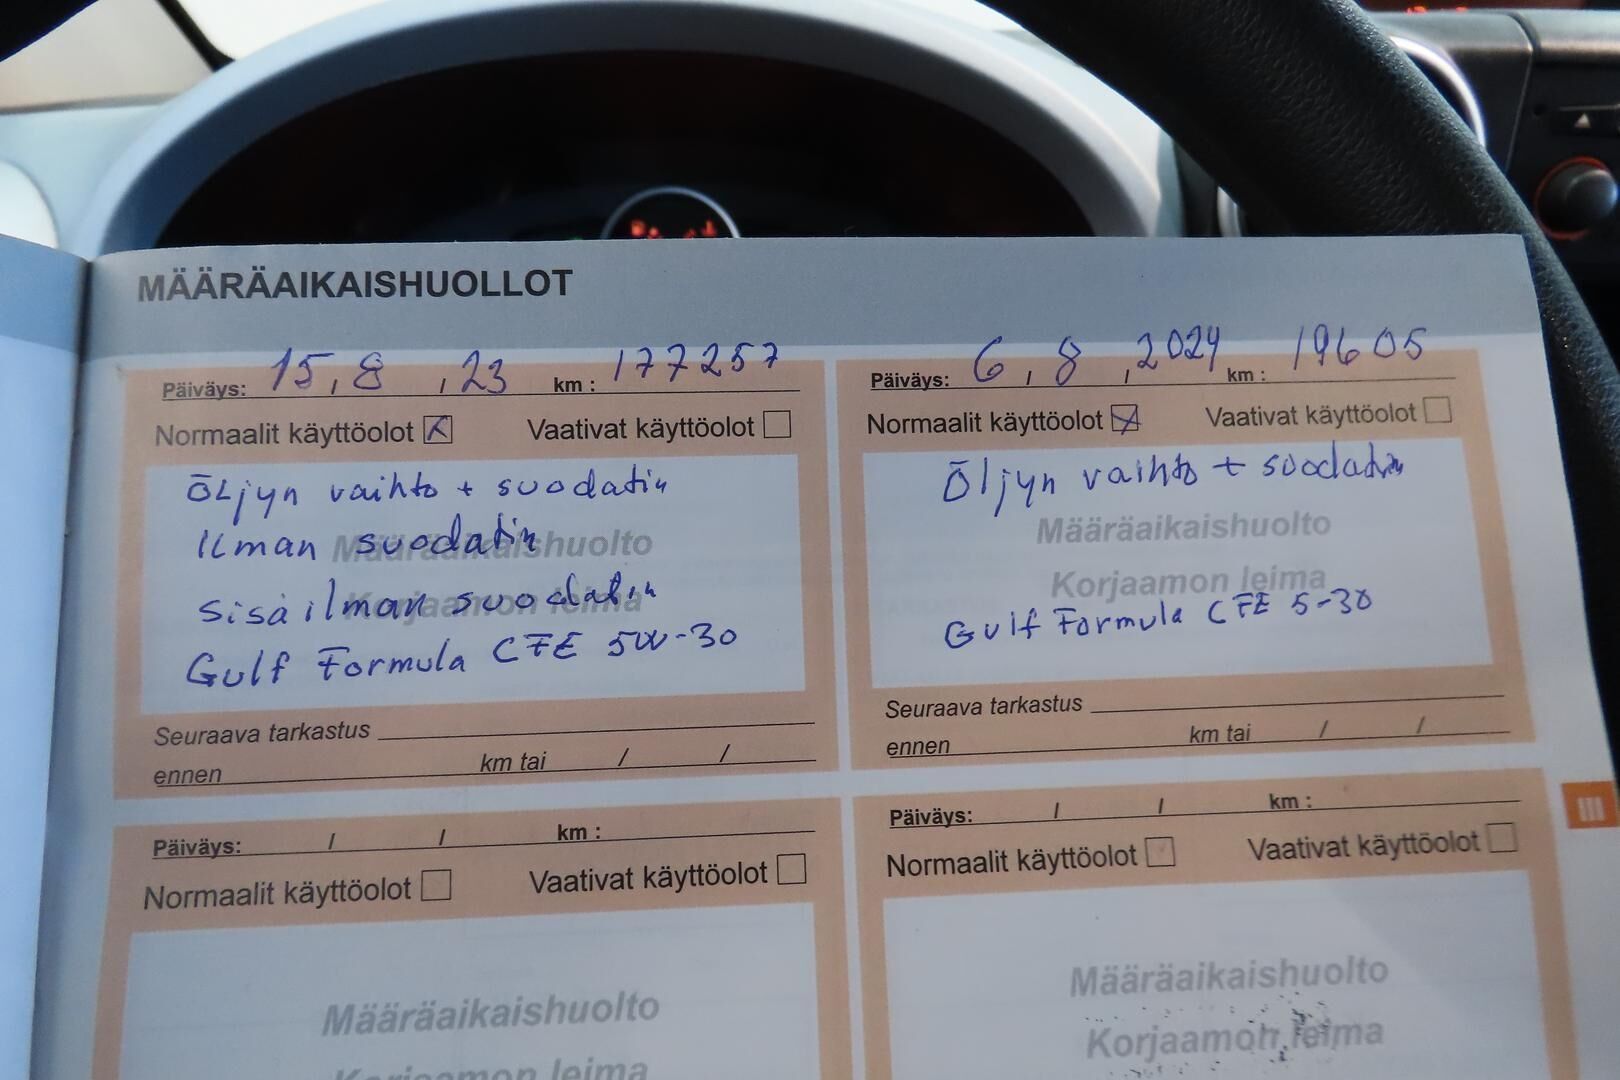 MÄÄRÄAIKAISHUOLLOT
Päiväys: 15 , 8 , 23 km : 177257
Normaalit käyttöolot Vaativat käyttöolot
Öljyn vaihto + suodatin
Ilman suodatin
Määräaikaishuolto
Sisäilman suodatin
Korjaamon leima
Gulf Formula CFE 5W-30
Seuraava tarkastus
ennen km tai / /
Päiväys: 6 , 8 , 2024 km : 19605
Normaalit käyttöolot Vaativat käyttöolot
Öljyn vaihto + suodatin
Määräaikaishuolto
Korjaamon leima
Gulf Formula CFE 5-30
Seuraava tarkastus
ennen km tai / /
Päiväys: / / km :
Normaalit käyttöolot Vaativat käyttöolot
Määräaikaishuolto
Korjaamon leima
Päiväys: / / km :
Normaalit käyttöolot Vaativat käyttöolot
Määräaikaishuolto
Korjaamon leima
III